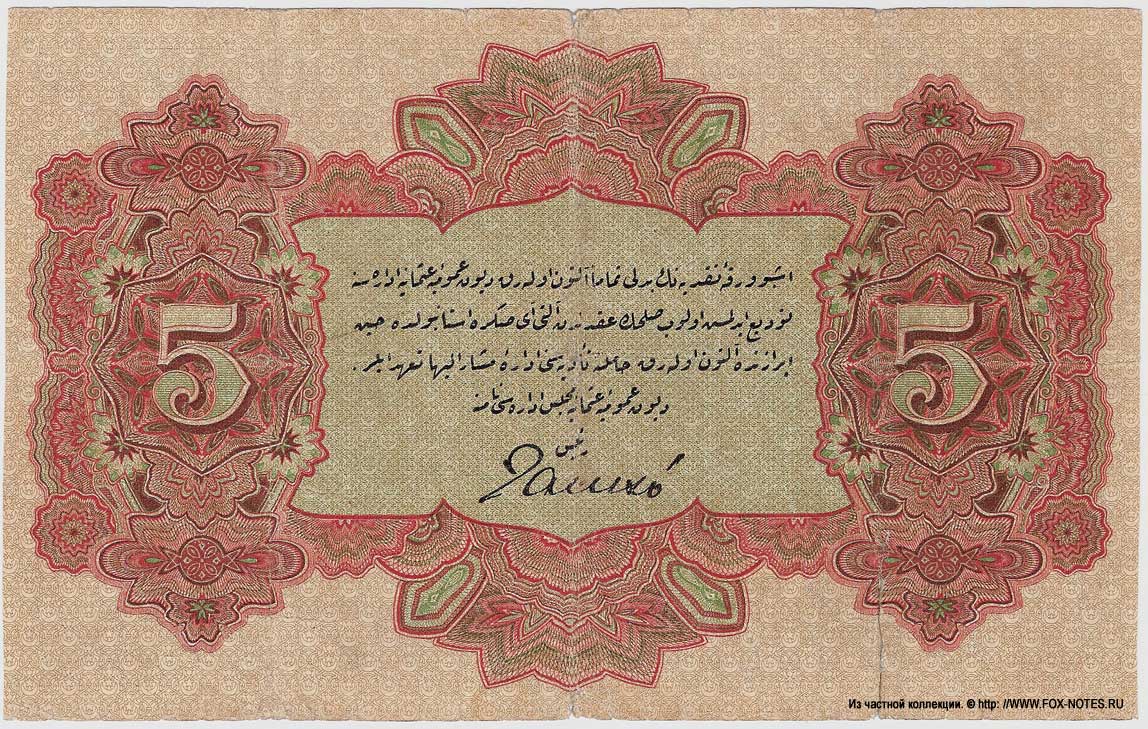 5
5
اشبو ورقهٔ نقدیه‌نك بدلی تماماً آلتون اوله‌رق دیون عمومیهٔ عثمانیه اداره‌سنه
تودیع ایدلمش اولوب صلحك عقدندن آلتی آی صكره استانبولده حین
ابرازنده آلتون اوله‌رق حاملنه تأدیه‌سنی ادارهٔ مشار الیها تعهد ایلر .
دیون عمومیهٔ عثمانیه مجلس اداره‌سی نامنه
رئیس
Из частной коллекции. © http: //WWW.FOX-NOTES.RU